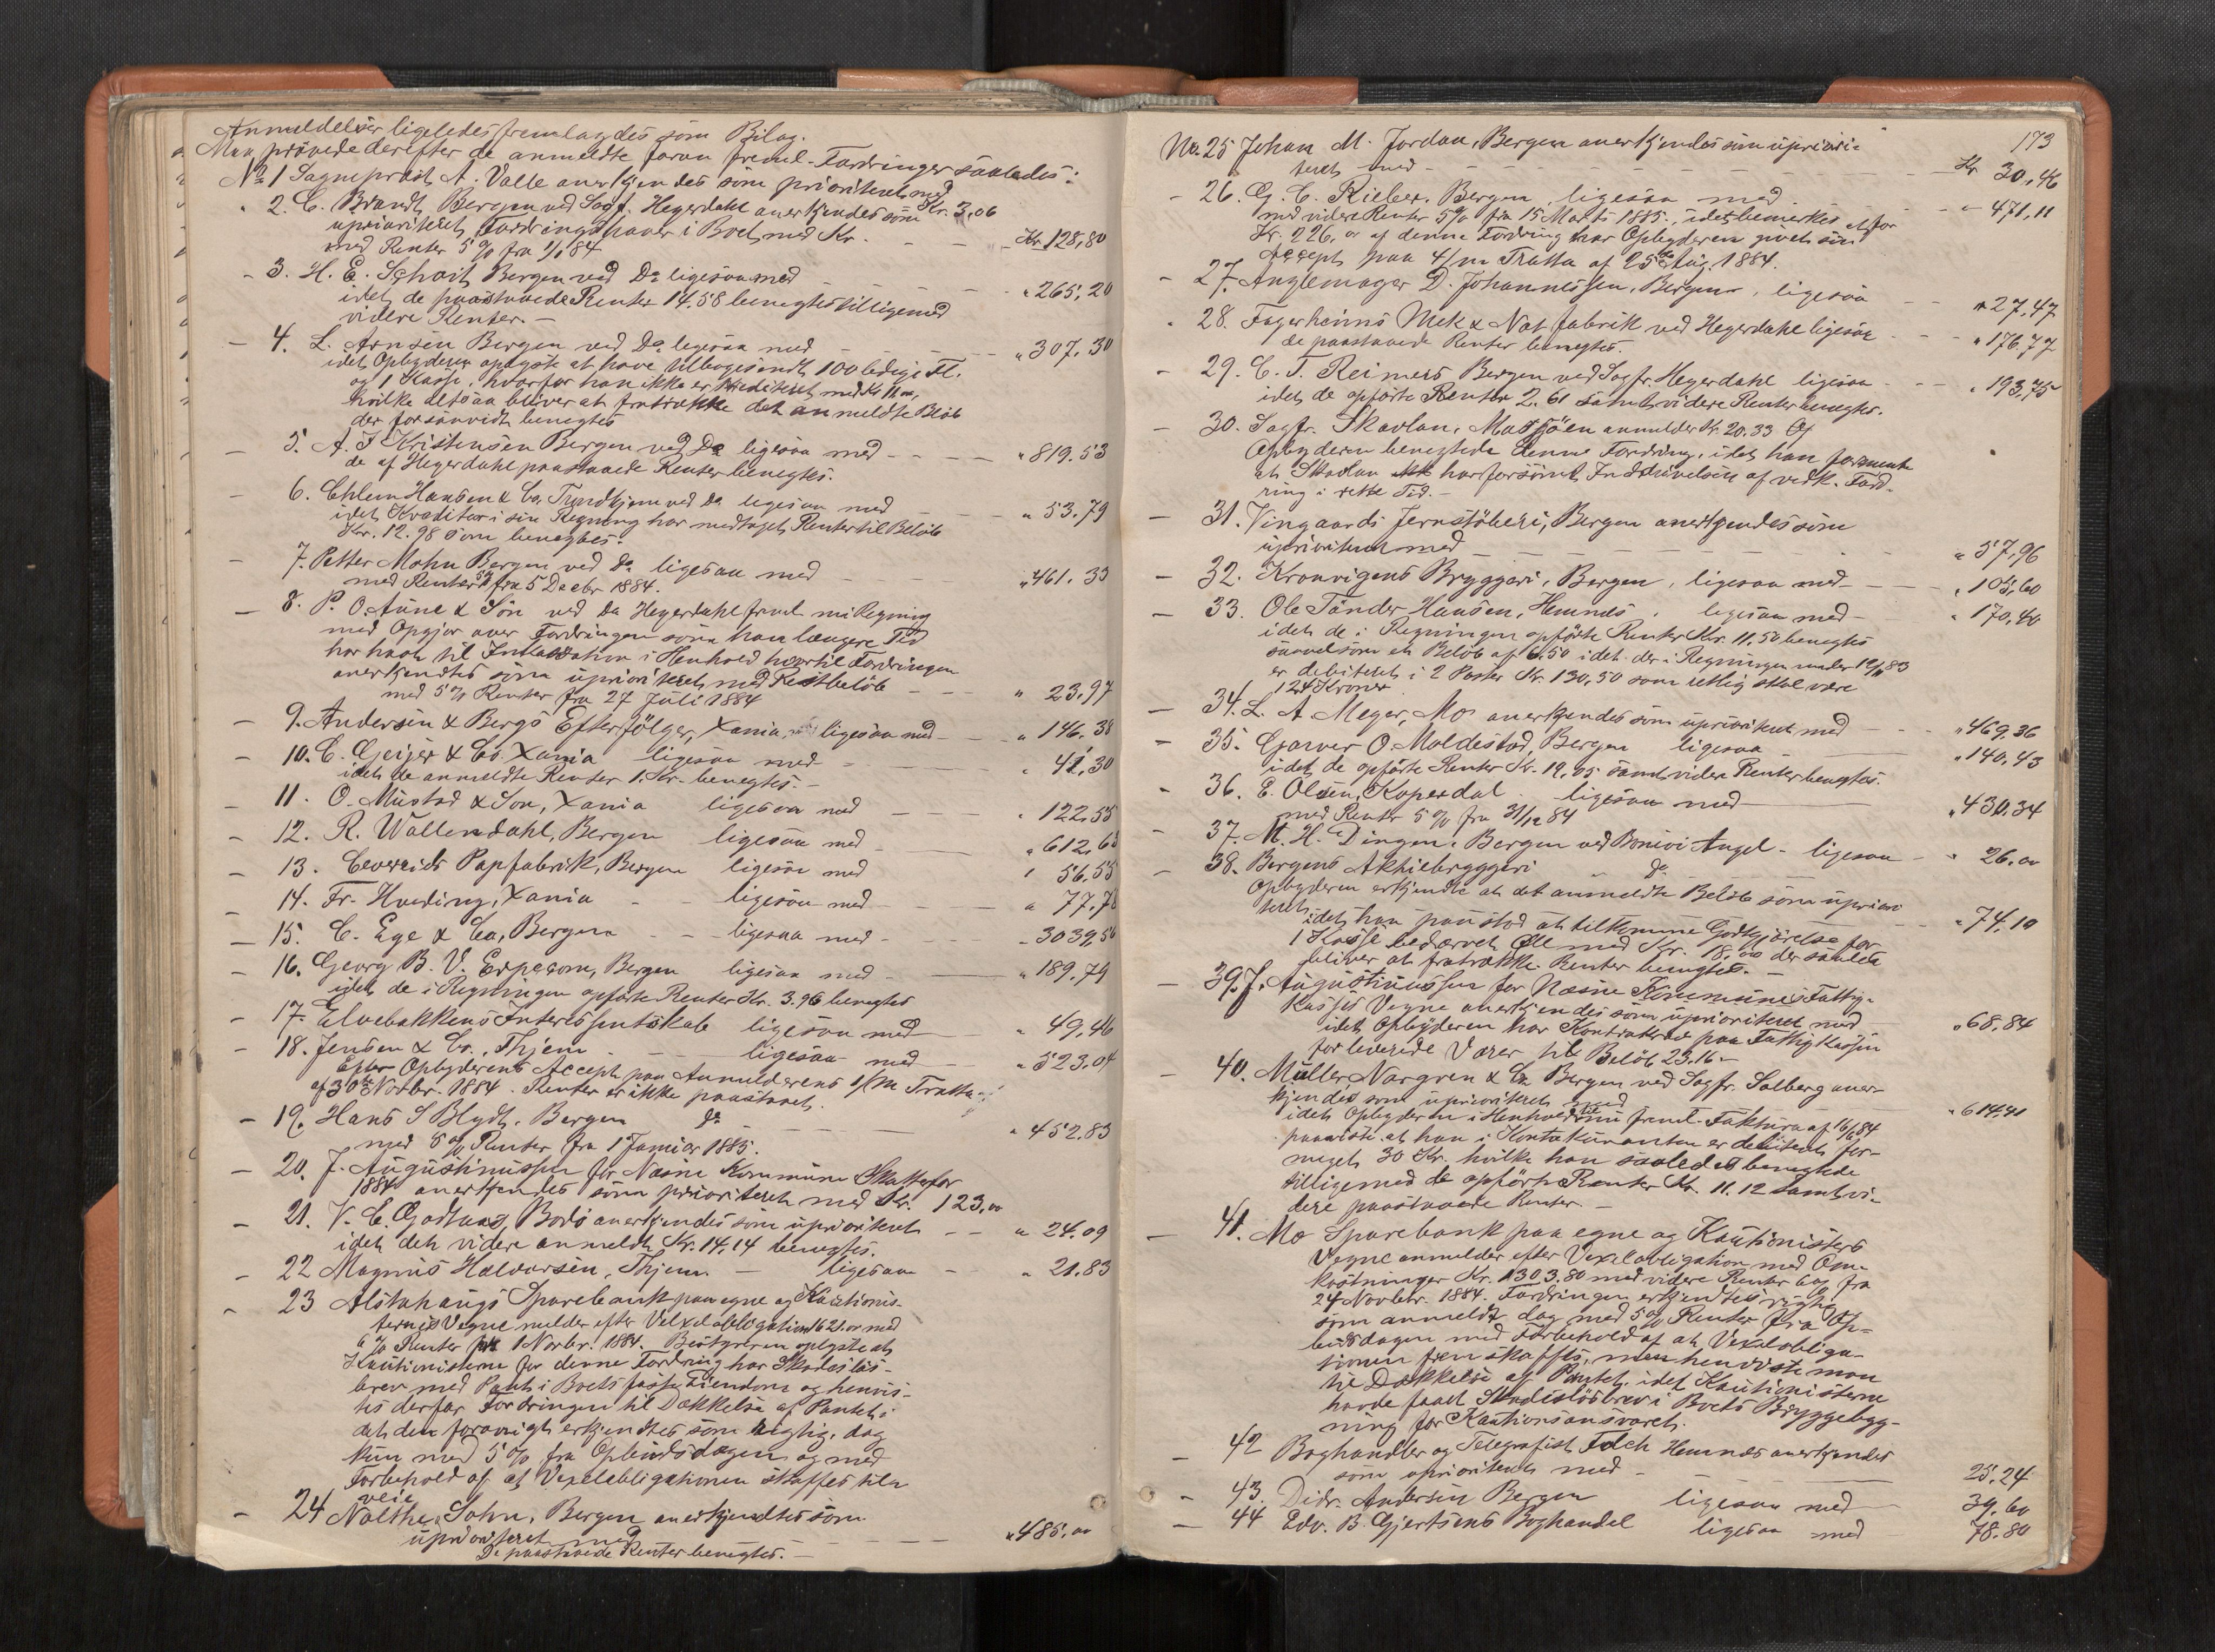 Anmeldelser ligeledes fremlagdes som Bilag.
Man prövede derefter de anmeldte foran freml. Fordringer saaledes:
No 1 Sogneprest A. Valle anerkjendes som prioriteret med Kr. 3,06
" 2. C. Brandt Bergen ved Sagf. Hegerdahl anerkjendes som
uprioriteret Fordringshaver i Boet med Kr. - - - Kr 128,80
med Renter 5 % fra 1/1 84
- 3. H. E. Schait Bergen ved Do ligesaa med - - - " 265,20
idet de paastaaede Renter 14.58 benegtes tilligemed
videre Renter. -
- 4. L. Arnsen Bergen ved Do ligesaa med - - - " 307.30
idet Opbyderen oplyste at have tilbagesendt 100 ledige Fl.
og 1 Kasse, hvorfor han ikke er krediteret med Kr 11,00,
hvilke altsaa bliver at fratrække det anmeldte Beløb
der forsaavidt benegtes
- 5. A. J. Kristensen Bergen ved Do ligesaa med - - - " 819.53
de af Hegerdahl paastaaede Renter benegtes.
- 6. Chlem Hansen & Co. Trondhjem ved do ligesaa med - - - " 53.79
idet Kreditor i sin Regning har medtaget Renter til Beløb
Kr. 12.98 som benegtes.
- 7. Petter Mohn Bergen ved do ligesaa med - - - " 461.33
med Renter 5% fra 5 Decbr 1884.
- 8. P. O. Aune & Sön ved do Hegerdahl freml. ni Regning
med Opgjør over Fordringen som han længere Tid
har havt til Inkassation i Henhold hvortil Fordringen
anerkjendtes som uprioriteret med Restbeløb - - - " 23.97
med 5 % Renter fra 27 Juli 1884
- 9. Andersen & Bergs Efterfölger, Xania, ligesaa med - - " 146.38
- 10. C. Geijer & Co. Xania ligesaa med - - - " 41,30
idet de anmeldte Renter 1. Kr. benegtes. -
- 11. O. Mustad & Son, Xania ligesaa med - - - " 122,55
- 12. R. Wallendahl, Bergen ligesaa med - - " 612,68
- 13. Ceverids Papfabrik, Bergen ligesaa med " 56.55
- 14. Fr. Hveding, Xania - - ligesaa med - - - " 77,78
- 15. C. Ege & Co, Bergen - - ligesaa med - - - - 3039,56
- 16. Georg B. V. Erpecom, Bergen ligesaa med - - " 189.79
idet de i Regningen opførte Renter Kr. 3.96 benegtes
- 17. Elvebakkens Interessentskab ligesaa med - " 49,46
- 18. Jensen & Co., Thjem - - ligesaa med - - " 523.04
efter Opbyderens Accept paa Anmelderens 1/m Tratta
af 30te Novbr. 1884. Renter er ikke paastaaet.
- 19. Hans S Blydt. Bergen do - - - " 452.83
med 5 % Renter fra 1 Januar 1885.
- 20. J. Augustinussen for Næsne Kommune Skatter for
1884 anerkjendes som prioriteret med Kr. 123,00
- 21. V. C. Godtaas, Bodö anerkjendes som uprioriteret - - " 24.09
idet det videre anmeldte Kr. 14,14 benegtes.
- 22 Magnus Halvorsen, Thjem. - ligesaa - " 21.83
- 23 Alstahaugs Sparebank paa egne og Kautionis-
ternes Vegne melder efter Vexelobligation 1621.00 med
6 % Renter fra 1 Novbr. 1884. Bestyreren oplyste at
Kautionisterne for denne Fordring har Skadeslös-
brev med Pant i Boets faste Eiendom og henvis-
tes derfor Fordringen til Dækkelse af Pantet i-
det den forøvrigt erkjendtes som rigtig, dog
kun med 5 % fra Opbudsdagen og med
Forbehold af at Vexelobligationen skaffes tilv
veie
- 24 Nolthe, Sohn, Bergen anerkjendtes som
uprioriteret med - - - " 485,00
De paastaaede Renter benegtes. -
173
No. 25 Johan M. Jordan, Bergen anerkjendes som upriori-
teret med - - - Kr 30,46
- 26. G. C. Rieber, Bergen, ligesaa med - - - 471,11
med videre Renter 5% fra 15 Marts 1885, idet bemerkes at for
Kr. 226,00 af denne Fordring har Opbyderen givet sin
Accept paa 4/m Tratta af 25de Aug. 1884.
- 27. Anglemager D. Johannessen, Bergen, ligesaa - " 27,47
- 28. Fagerheims Mek & Not fabrik ved Hegerdahl ligesaa - " 176,77
de paastaaede Renter benegtes.
- 29. C. T. Reimers Bergen ved Sagfr. Hegerdahl ligesaa - - " 193,75
idet de opførte Renter 2.61 samt videre Renter benegtes.
- 30. Sagfr. Skavlan, Mosjöen anmelder Kr. 20.33
Opbyderen benegtede denne Fordring, idet han formente
at Skavlan har forsømt Inddrivelsen af vedk. Ford-
ring i rette Tid. -
- 31. Vingaards Jernstöberi, Bergen anerkjendes som
uprioriteret med - - - " 57,96
- 32. Kronvigens Bryggeri, Bergen, ligesaa med - " 105,60
- 33. Ole Tönder Hansen, Hemnes, ligesaa med - " 170,40
idet de i Regningen opførte Renter Kr. 11,50 benegtes
saavelsom et Beløb af 6.50 idet der i Regningen under 12/11 83
er debiteret i 2 Poster Kr. 130,50 som rettelig skal være
124 Kroner
- 34. L. A Meyer, Mo anerkjendes som uprioriteret med - - " 469,36
- 35. Garver O. Moldestad, Bergen ligesaa - " 140,43
idet de opførte Renter Kr. 19,05 samt videre Renter benegtes.
- 36. E. Olsen, Kopesdal. ligesaa med - " 430,34
med Renter 5 % fra 31/12 84
- 37. M. H. Dingen, Bergen ved Bonivi Angel - ligesaa - " 26,00
- 38. Bergens Aktiebryggeri do
Opbyderen erkjendte at det anmeldte Beløb som upriori
teret - " 74,10
idet han paastod at tilkomme Godtgjörelse for
1 Kasse bedærvet Øl med Kr. 18,00 der saaledes
bliver at fratrække. Renter benegtes. -
- 39. J. Augustinussen for Næsne Kommunes Fattig-
kasses Vegne anerkjendes som uprioriteret med - " 68.84
idet Opbyderen har Kontrakrav paa Fattigkassen
for leverede Varer til Beløb 23.16 -
- 40. Müller Nargren & Co Bergen ved Sagfr. Solberg aner-
kjendes som uprioriteret med - " 614,41
idet Opbyderen i Henhold til nu freml. Faktura af 16/8 84
paaviste at han i Kontokuranten er debiteret for-
meget 30 Kr. hvilke han saaledes benegtede
tilligemed de opførte Renter Kr. 11.12 samt vi-
dere paastaaede Renter. -
- 41. Mo Sparebank paa egne og Kautionisters
Vegne anmelder efter Vexelobligation med Om-
kostninger Kr. 1303.80 med videre Renter 6% fra
24 Novbr. 1884. Fordringen erkjendtes rigtig
som anmeldt dog med 5 % Renter fra Op-
budsdagen med Forbehold af at Vexelobliga-
tionen fremskaffes, men henviste man
til Dækkelse af Pantet, idet Kautionisterne
havde faaet Skadeslösbrev i Boets Bryggebyg-
ning for Kautionsansvaret.
- 42 Boghandler og Telegrafist Foch Hemnes anerkjendes
som uprioriteret med - 25.24
- 43. Didr. Andersen Bergen ligesaa med - 39,60
- 44 Edv. B. Gjertsens Boghandel ligesaa med 78.80